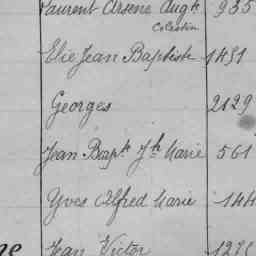 Laurent Arsène Aug.te 935
Célestin
Elie Jean Baptiste 1451
Georges 2129
Jean Bap.te J.h Marie 561
Yves Alfred Marie 144
Jean Victor